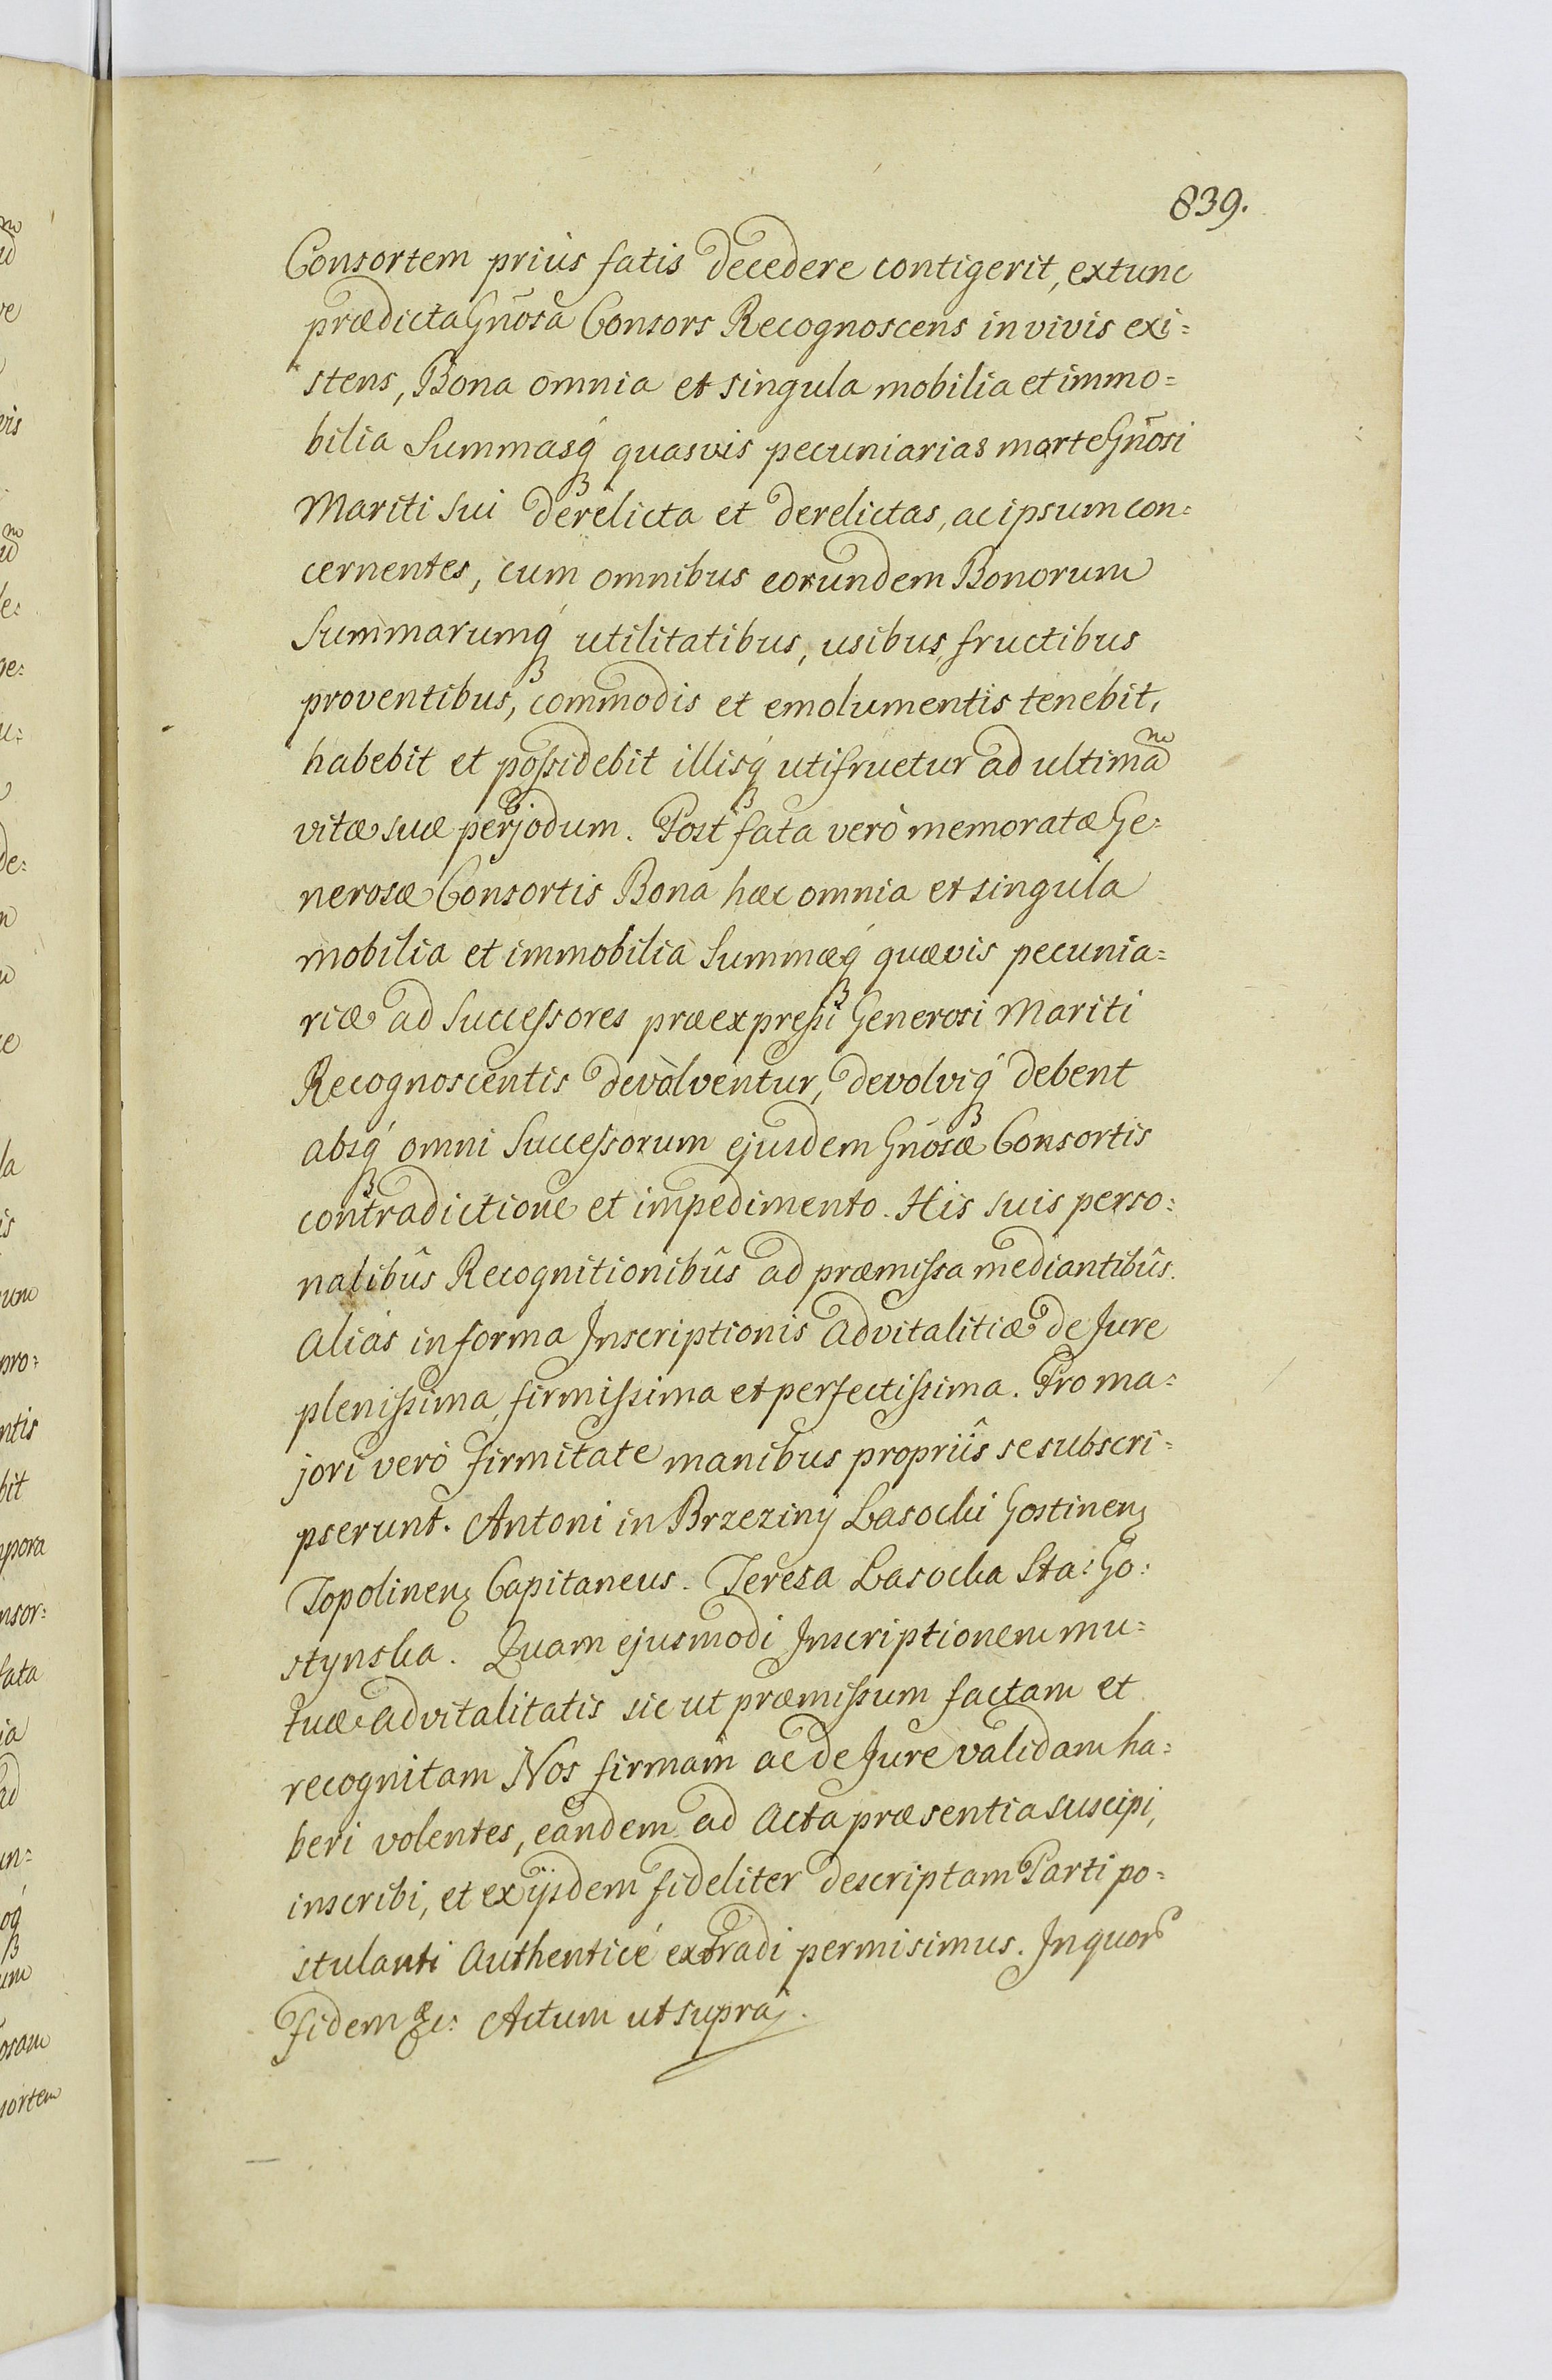 839.
Consortem prius fatis decedere contigerit, extunc
prædicta Gnosa Consors Recognoscens in vivis exi=
stens, Bona omnia et singula mobilia et immo=
bilia Summasq́ quasvis pecuniarias morte Gnosi
Mariti sui derelicta et derelictas, ac ipsum con=
cernentes, cum omnibus eorundem Bonorum
Summarumq́ utilitatibus, usibus, fructibus
proventibus, commodis et emolumentis tenebit,
habebit et possidebit illisq́ utifruetur ad ultimam
vitæ suæ perjodum. Post fata verò memoratæ Ge=
nerosæ Consortis Bona hæc omnia et singula
mobilia et immobilia Summæq́ quævis pecunia=
riæ ad Successores præexpressi Generosi Mariti
Recognoscentis devolventur, devolviq́ debent
absq́ omni Successorum ejusdem Gnosæ Consortis
contradictione et impedimento. His suis perso=
nalibûs Recognitionibûs ad præmissa mediantibûs.
Aliàs in forma Inscriptionis Advitalitiæ de Jure
plenissima, firmissima et perfectissima. Pro ma=
jori verò firmitate manibus propriîs se subscri=
pserunt. Antoni in Brzeziny Lasocki Gostinenꝫ
Topolinenꝫ Capitaneus. Teresa Lasocka Sta: Go:
stynska. Quam ejusmodi Inscriptionem mu=
tuæ Advitalitatis sic ut præmissum factam et
recognitam Nos firmam ac de Jure validam ha=
beri volentes, eandem ad Acta præsentia suscipi,
inscribi, et ex ijsdem fideliter descriptam Parti po=
stulanti Authenticé extradi permisimus. In quor
fidem &c: Actum ut supra.